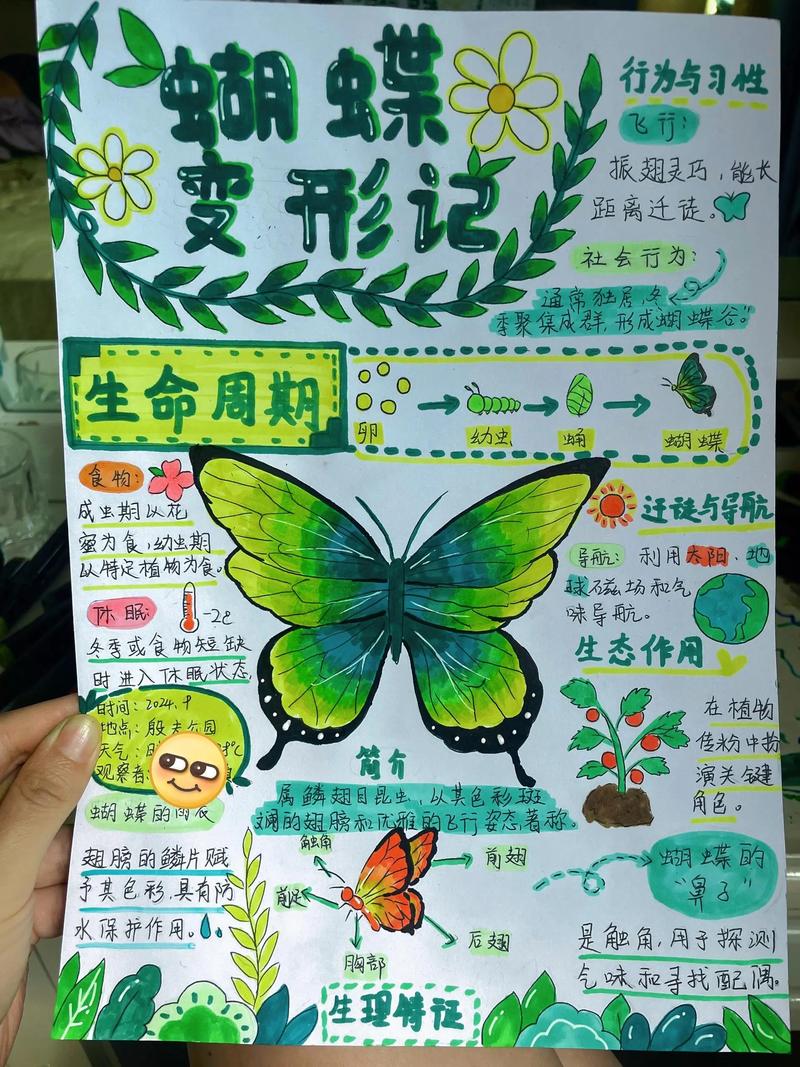 蝴蝶
变形记
行为与习性
飞行:
振翅灵巧,能长
距离迁徙。
社会行为:
通常独居,冬
季聚集成群,形成蝴蝶谷。"
生命周期
卵
幼虫
蛹
蝴蝶
食物:
成虫期以花
蜜为食,幼虫期
以特定植物为食。
休眠:
冬季或食物短缺
时进入休眠状态,
时间:2024.9
地点:殷夫公园
天气:
观察者:
迁徙与导航
导航: 利用太阳、地
球磁场和气
味导航。
生态作用
在植物
传粉中扮
演关键
角色。
简介
属鳞翅目昆虫,以其色彩斑
斓的翅膀和优雅的飞行姿态著称。
蝴蝶的雨衣
翅膀的鳞片赋
予其色彩,具有防
水保护作用。
触角
前翅
前足
后翅
胸部
生理特征
蝴蝶的
"鼻子"
是触角,用于探测
气味和寻找配偶。